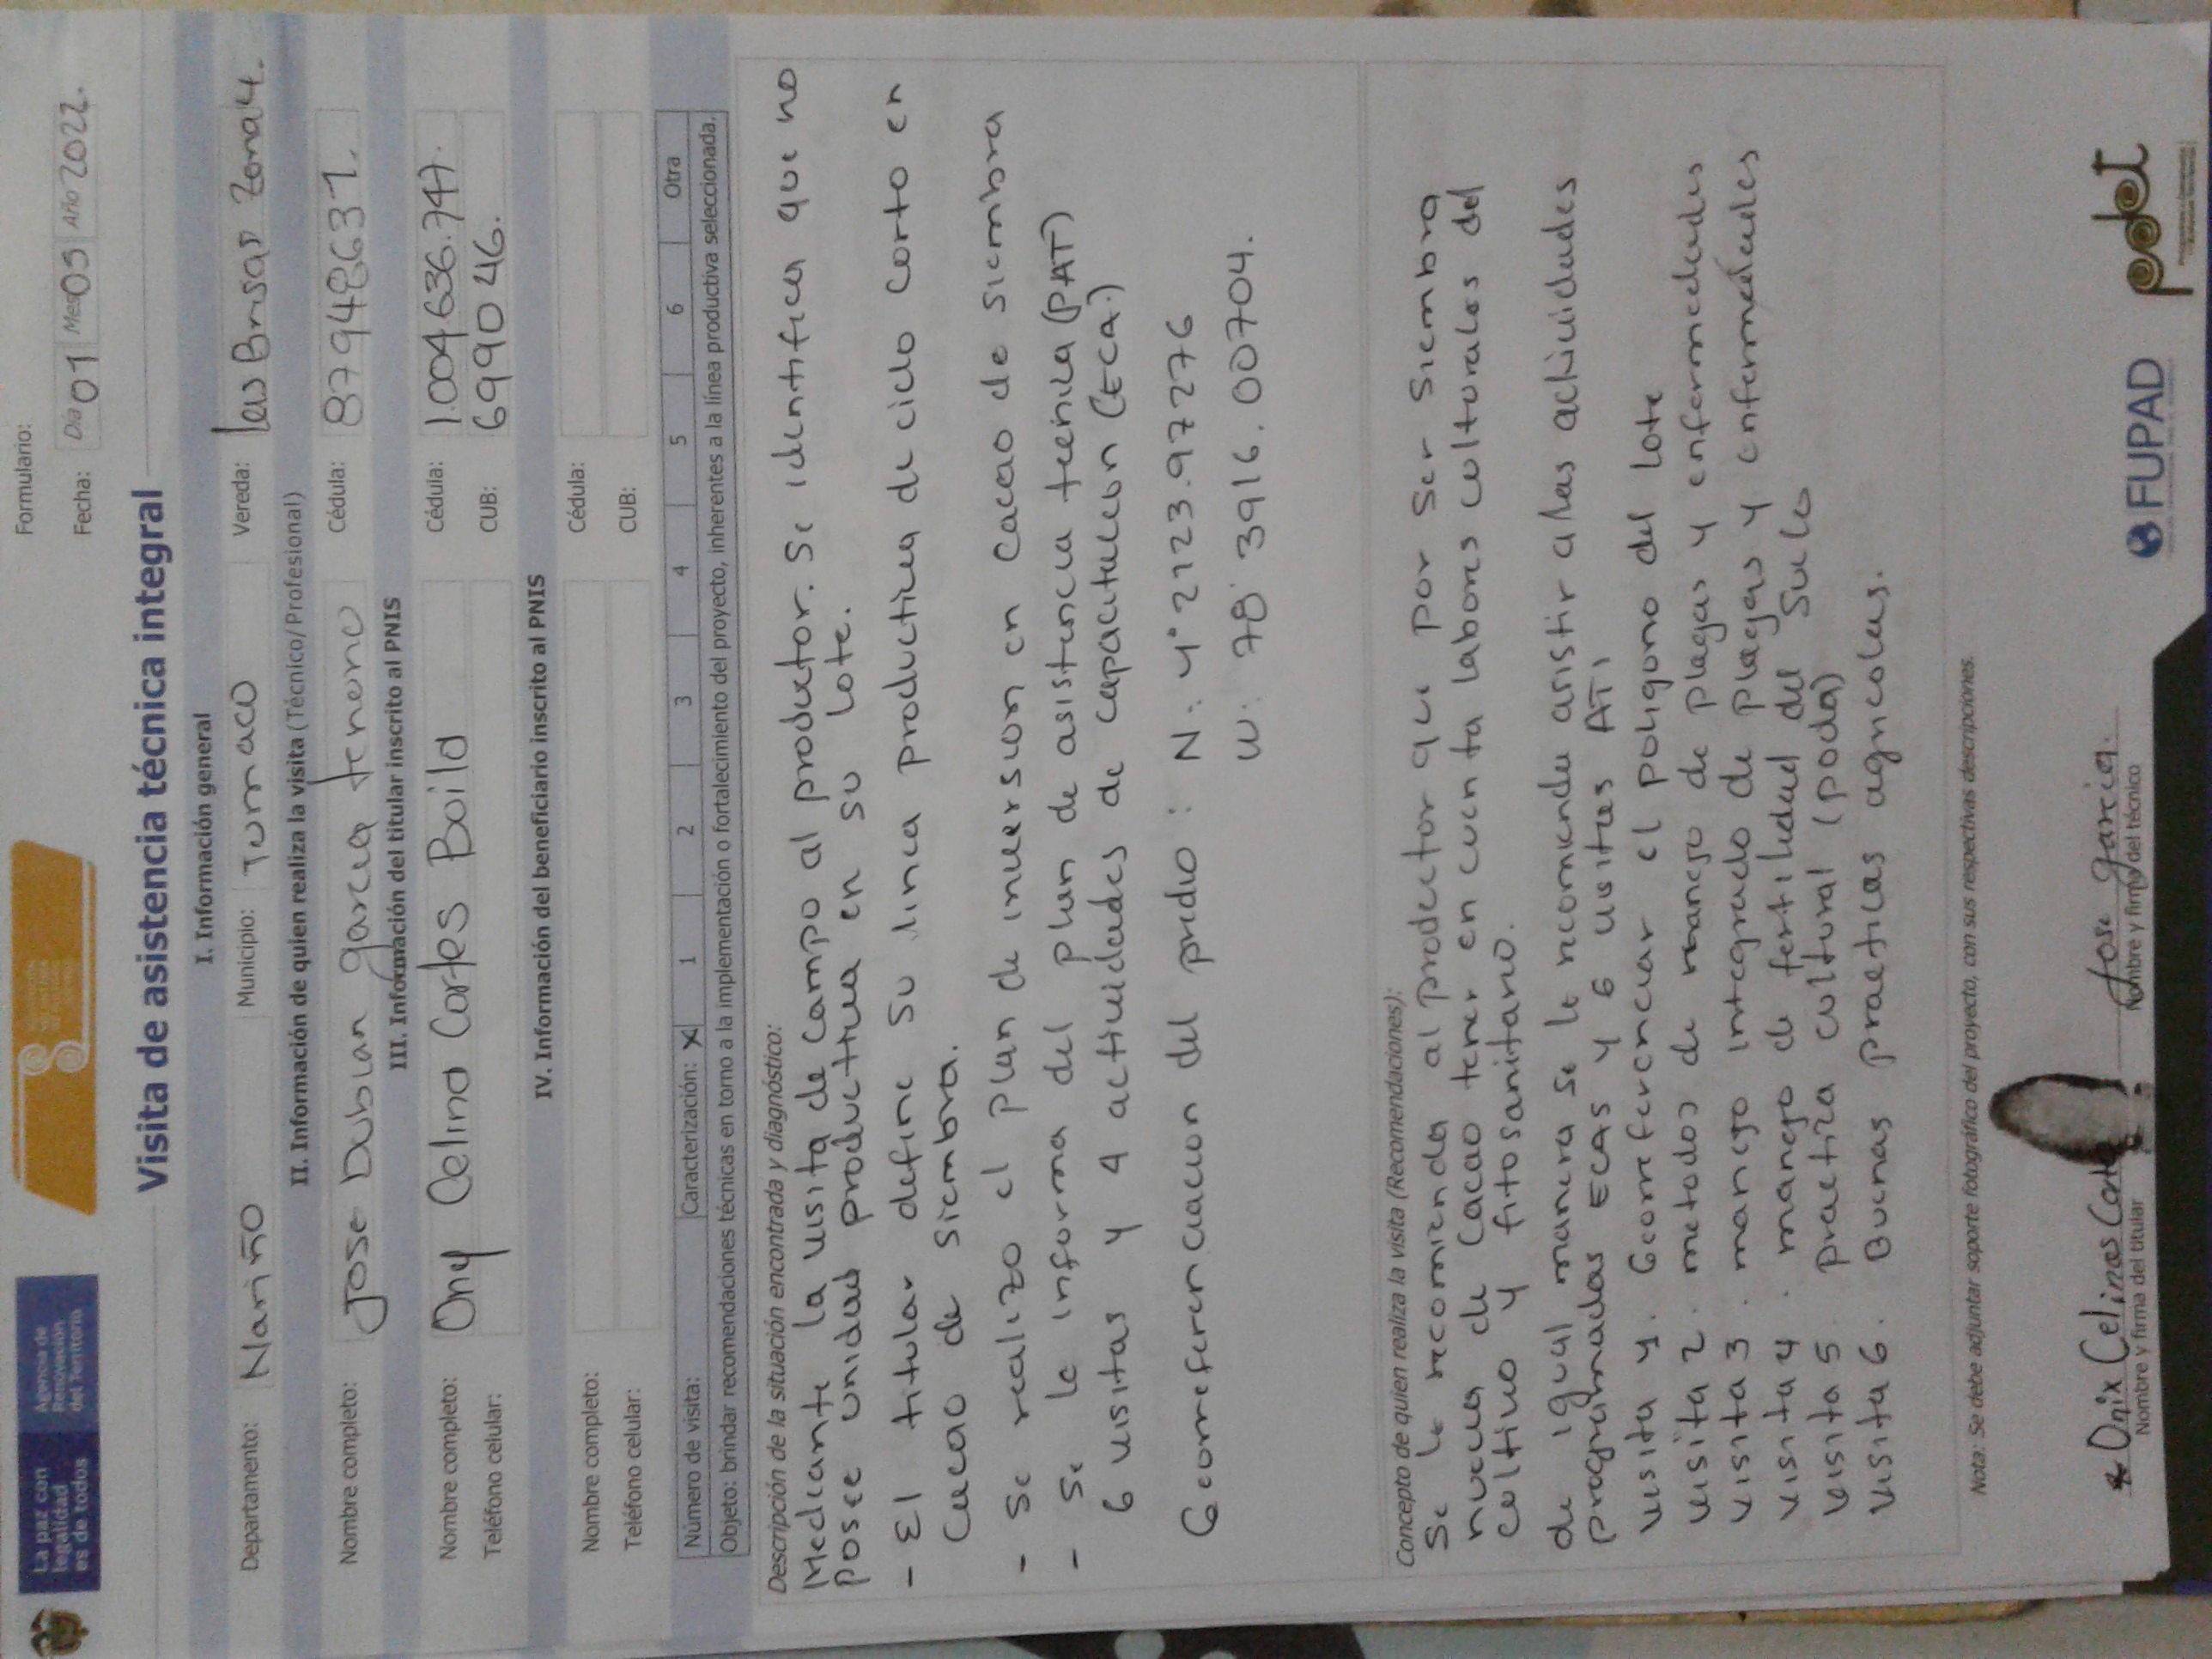 La paz con
legalidad
es de todos
Agencia de
Renovación
del Territorio
Formulario:
Fecha: Día 01 Mes 05 Año 2022.
Visita de asistencia técnica integral
I. Información general
Departamento: Nariño Municipio: Tumaco Vereda: las Brisas Zona 4.
II. Información de quien realiza la visita (Técnico/Profesional)
Nombre completo: Jose Dubian garcia teneno Cédula: 87948631.
III. Información del titular inscrito al PNIS
Nombre completo: Ony Celina Cortes Boila Cédula: 1.004.636.747.
Teléfono celular: CUB: 699046.
IV. Información del beneficiario inscrito al PNIS
Nombre completo: Cédula:
Teléfono celular: CUB:
Número de visita: Caracterización: X 1 2 3 4 5 6 Otra
Objeto: brindar recomendaciones técnicas en torno a la implementación o fortalecimiento del proyecto, inherentes a la línea productiva seleccionada.
Descripción de la situación encontrada y diagnóstico:
Mediante la visita de campo al productor. se identifica que no
posee unidad productiva en su lote.
- El titular define su linea productiva de ciclo corto en
cacao de siembra.
- se realizo el plan de inversion en cacao de siembra
- se le informa del plan de asistencia tecnica (PAT)
6 visitas y 4 actividades de capacitacion (ECA.)
Georreferenciacion del predio : N: 4° 2123.97276
W: 78° 3916.00704.
Concepto de quien realiza la visita (Recomendaciones):
se le recomienda al productor que por ser siembra
nueva de cacao tener en cuenta labores culturales del
cultivo y fitosanitario.
de igual manera se le recomienda asistir a las actividades
programadas ECAS y 6 visitas ATI
visita 1. Georreferenciar el poligono del lote
visita 2. metodos de manejo de plagas y enfermedades
visita 3. manejo integrado de plagas y enfermedades
visita 4. manejo de fertilidad del suelo
visita 5. practica cultural (poda)
visita 6. Buenas practicas agricolas.
Nota: Se debe adjuntar soporte fotográfico del proyecto, con sus respectivas descripciones.
Onix Celinas Corte
Nombre y firma del titular
Jose garcia.
Nombre y firma del técnico
FUPAD
pdet